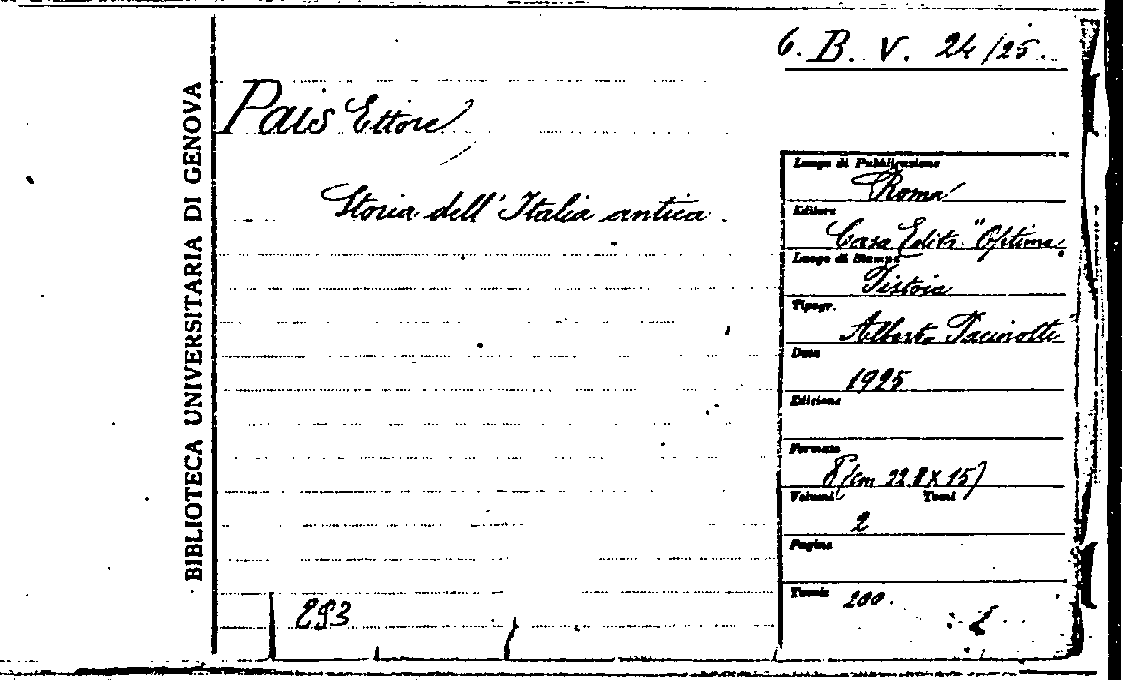 6. B. V. 24/25.
BIBLIOTECA UNIVERSITARIA DI GENOVA
Pais Ettore
Storia dell'Italia antica.
Luogo di Pubblicazione
Roma
Editore
Casa Editr. "Optima"
Luogo di Stampa
Pistoia
Tipogr.
Alberto Pacinotti
Data
1925
Edizione
Formato
8 (cm 22,8 X 15)
Volumi Tomi
2
Pagine
Tavole
200.
293